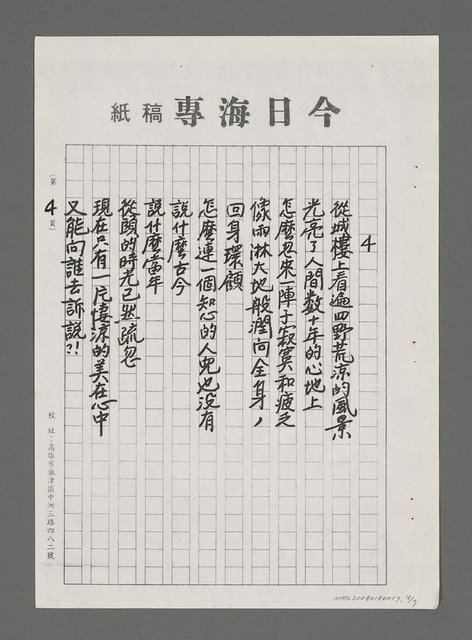 今日海專稿紙
4
從城樓上看遍四野荒涼的風景
光亮了人間数十年的心地上
怎麼忽來一陣子寂寞和疲乏
像雨淋大地般潤向全身，
回身環顧
怎麼連一個知心的人兒也沒有
說什麼古今
說什麼當年
從頭的時光已然疏忽
現在只有一片悽涼的美在心中
又能向誰去訴說?!
(第4頁)
校址：高雄市旗津區中洲三路四八二號
NMTL20080180017. 4/7